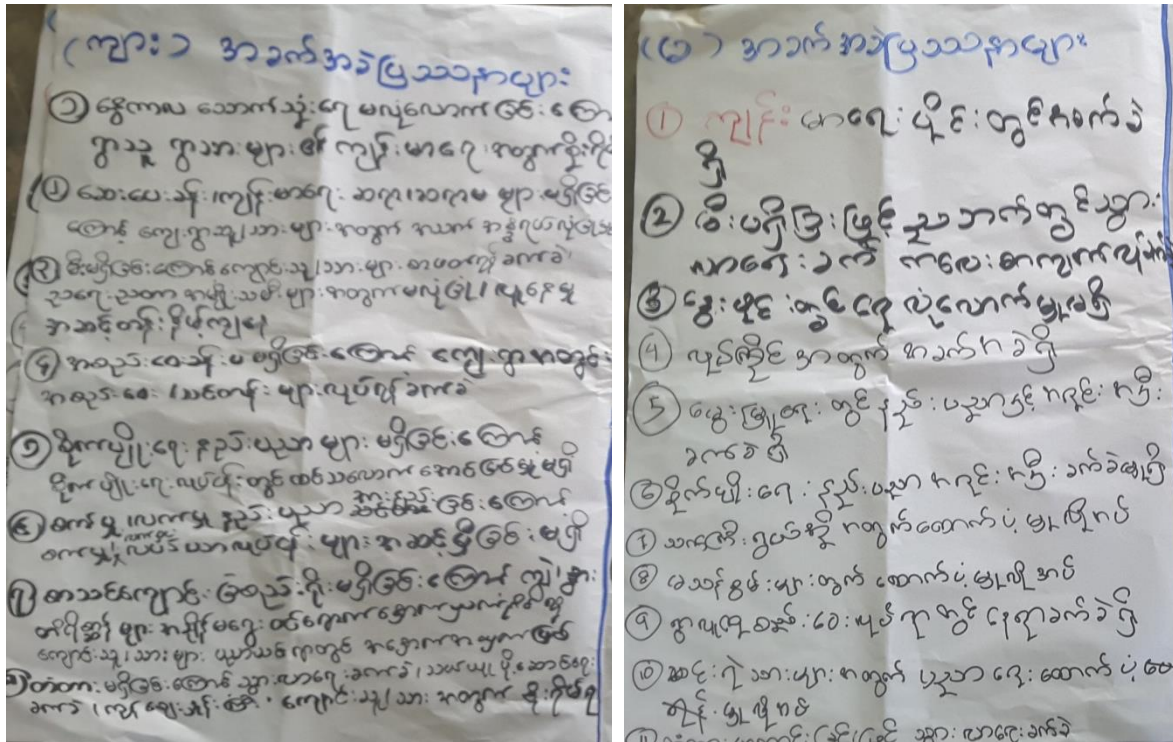 (ကျား) အခက်အခဲပြဿနာများ
၁ နွေကာလ သောက်သုံးရေ မလုံလောက်ခြင်းကြော
ရွာသူ ရွာသားများ၏ ကျန်းမာရေး အတွက် စိုးရိမ်
ဆေးပေးခန်း၊ ကျန်းမာရေး ဆရာ၊ဆရာမ များ မရှိခြင်း
ကြောင့် ကျေးရွာသူ၊သားများ အတွက် အသက် အန္တရာယ်
မီးမရှိခြင်းကြောင့် ကျောင်းသူ၊သား များ စာဖတ်ရန် ခက်ခဲ၊
ညရေး ညတာ အမျိုးသမီးများ အတွက် မလုံခြုံ၊ လူနေမှု
အဆင့်တန်း နိမ့်ကျနေ
၄ အစည်းဝေးခန်းမ မရှိခြင်းကြောင့် ကျေးရွာ အတွင်း
အစည်းဝေး၊ သင်တန်း များ လုပ်ရန် ခက်ခဲ
၅ စိုက်ပျိုးရေး နည်းပညာ များ မရှိခြင်းကြောင့်
စိုက်ပျိုးရေး လုပ်ငန်းတွင် ထင်သလောက် အောင်မြင်မှု မရှိ
၆ စက်မှု၊ လက်မှု နည်းပညာ နည်းခြင်းကြောင့်
စက်မှု၊ လုပ်ငန်းများ အဆင့်ရှိခြင်း မရှိ
၇ စာသင်ကျောင်း ခြံစည်းရိုး မရှိခြင်းကြောင့် ကျွဲ၊ နွား
တိရိစ္ဆာန် များ အချိန်မရွေး
ကျောင်းသူ၊သားများ ပညာသင်ရာတွင် အနှောက်အယှက်ဖြစ်
၈ တံတား မရှိခြင်းကြောင့် သွားလာရေး ခက်ခဲ၊ သယ်ယူပို့ဆောင်ရေး
ခက်ခဲ၊ ကျောင်းသူ၊သား အတွက် စိုးရိမ်ရ
(မ) အခက်အခဲပြဿနာများ
① ကျန်းမာရေးပိုင်းတွင် ခက်ခဲ
ရှိ
② မီးမရှိခြင်းဖြင့် ညဘက်တွင် သွား
လာရေးခက် ကလေးစာကျက်
③ နွေပိုင်းတွင် ရေ လုံလောက်မှုမရှိ
④ အတွက် အခက်အခဲရှိ
⑤ မွေးမြူရေးတွင် နည်းပညာနှင့် အရင်းအနှီး
ခက်ခဲရှိ
⑥ စိုက်ပျိုးရေး နည်းပညာ အရင်းအနှီး ခက်ခဲမှုရှိ
⑦ သက်ကြီးရွယ်အို အတွက်ထောက်ပံ့မှုလိုအပ်
⑧ မသန်စွမ်းများတွက် ထောက်ပံ့မှုလိုအပ်
⑨ ရွာလူထုစည်းဝေးလုပ်ရာတွင် နေရာခက်ခဲရှိ
⑩ ဆင်းရဲသားများအတွက် ပညာရေးထောက်ပံ့ပေး
ရန်မှုလိုအပ်
⑪ သွားလာရေးခက်ခဲ